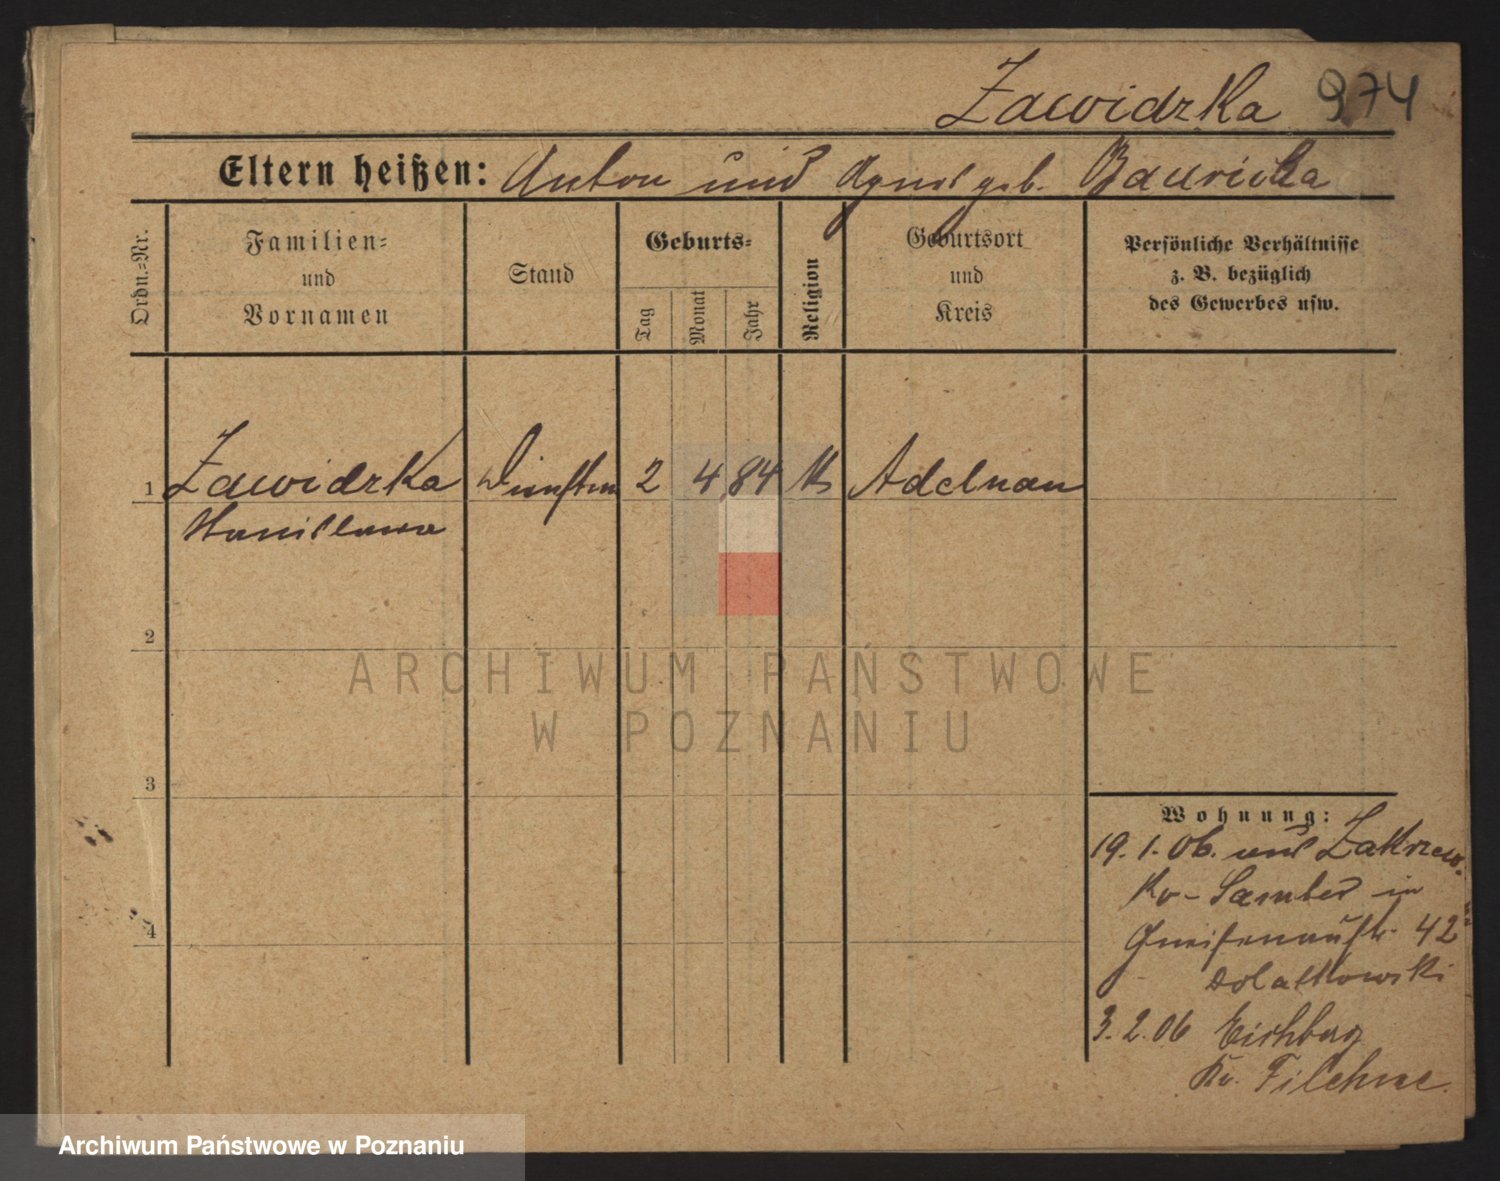 Zawidzka 974
Eltern heißen: Anton und Agnes geb. Bauricka
Ordn.=Nr.
Familien=
und
Vornamen
Stand
Geburts=
Tag
Monat
Jahr
Religion
Geburtsort
und
Kreis
Persönliche Verhältnisse
z. B. bezüglich
des Gewerbes usw.
1 Zawidzka Dienstm 2 4 84 k Adelnau
Stanislawa
2
3
4
Wohnung:
19.1.06. aus Zakrzew.
Kr- Samter in
Gneisenaustr. 42
Dolatkowski
3.2.06 Eichberg
Kr. Filehne.
ARCHIWUM PAŃSTWOWE
W POZNANIU
Archiwum Państwowe w Poznaniu